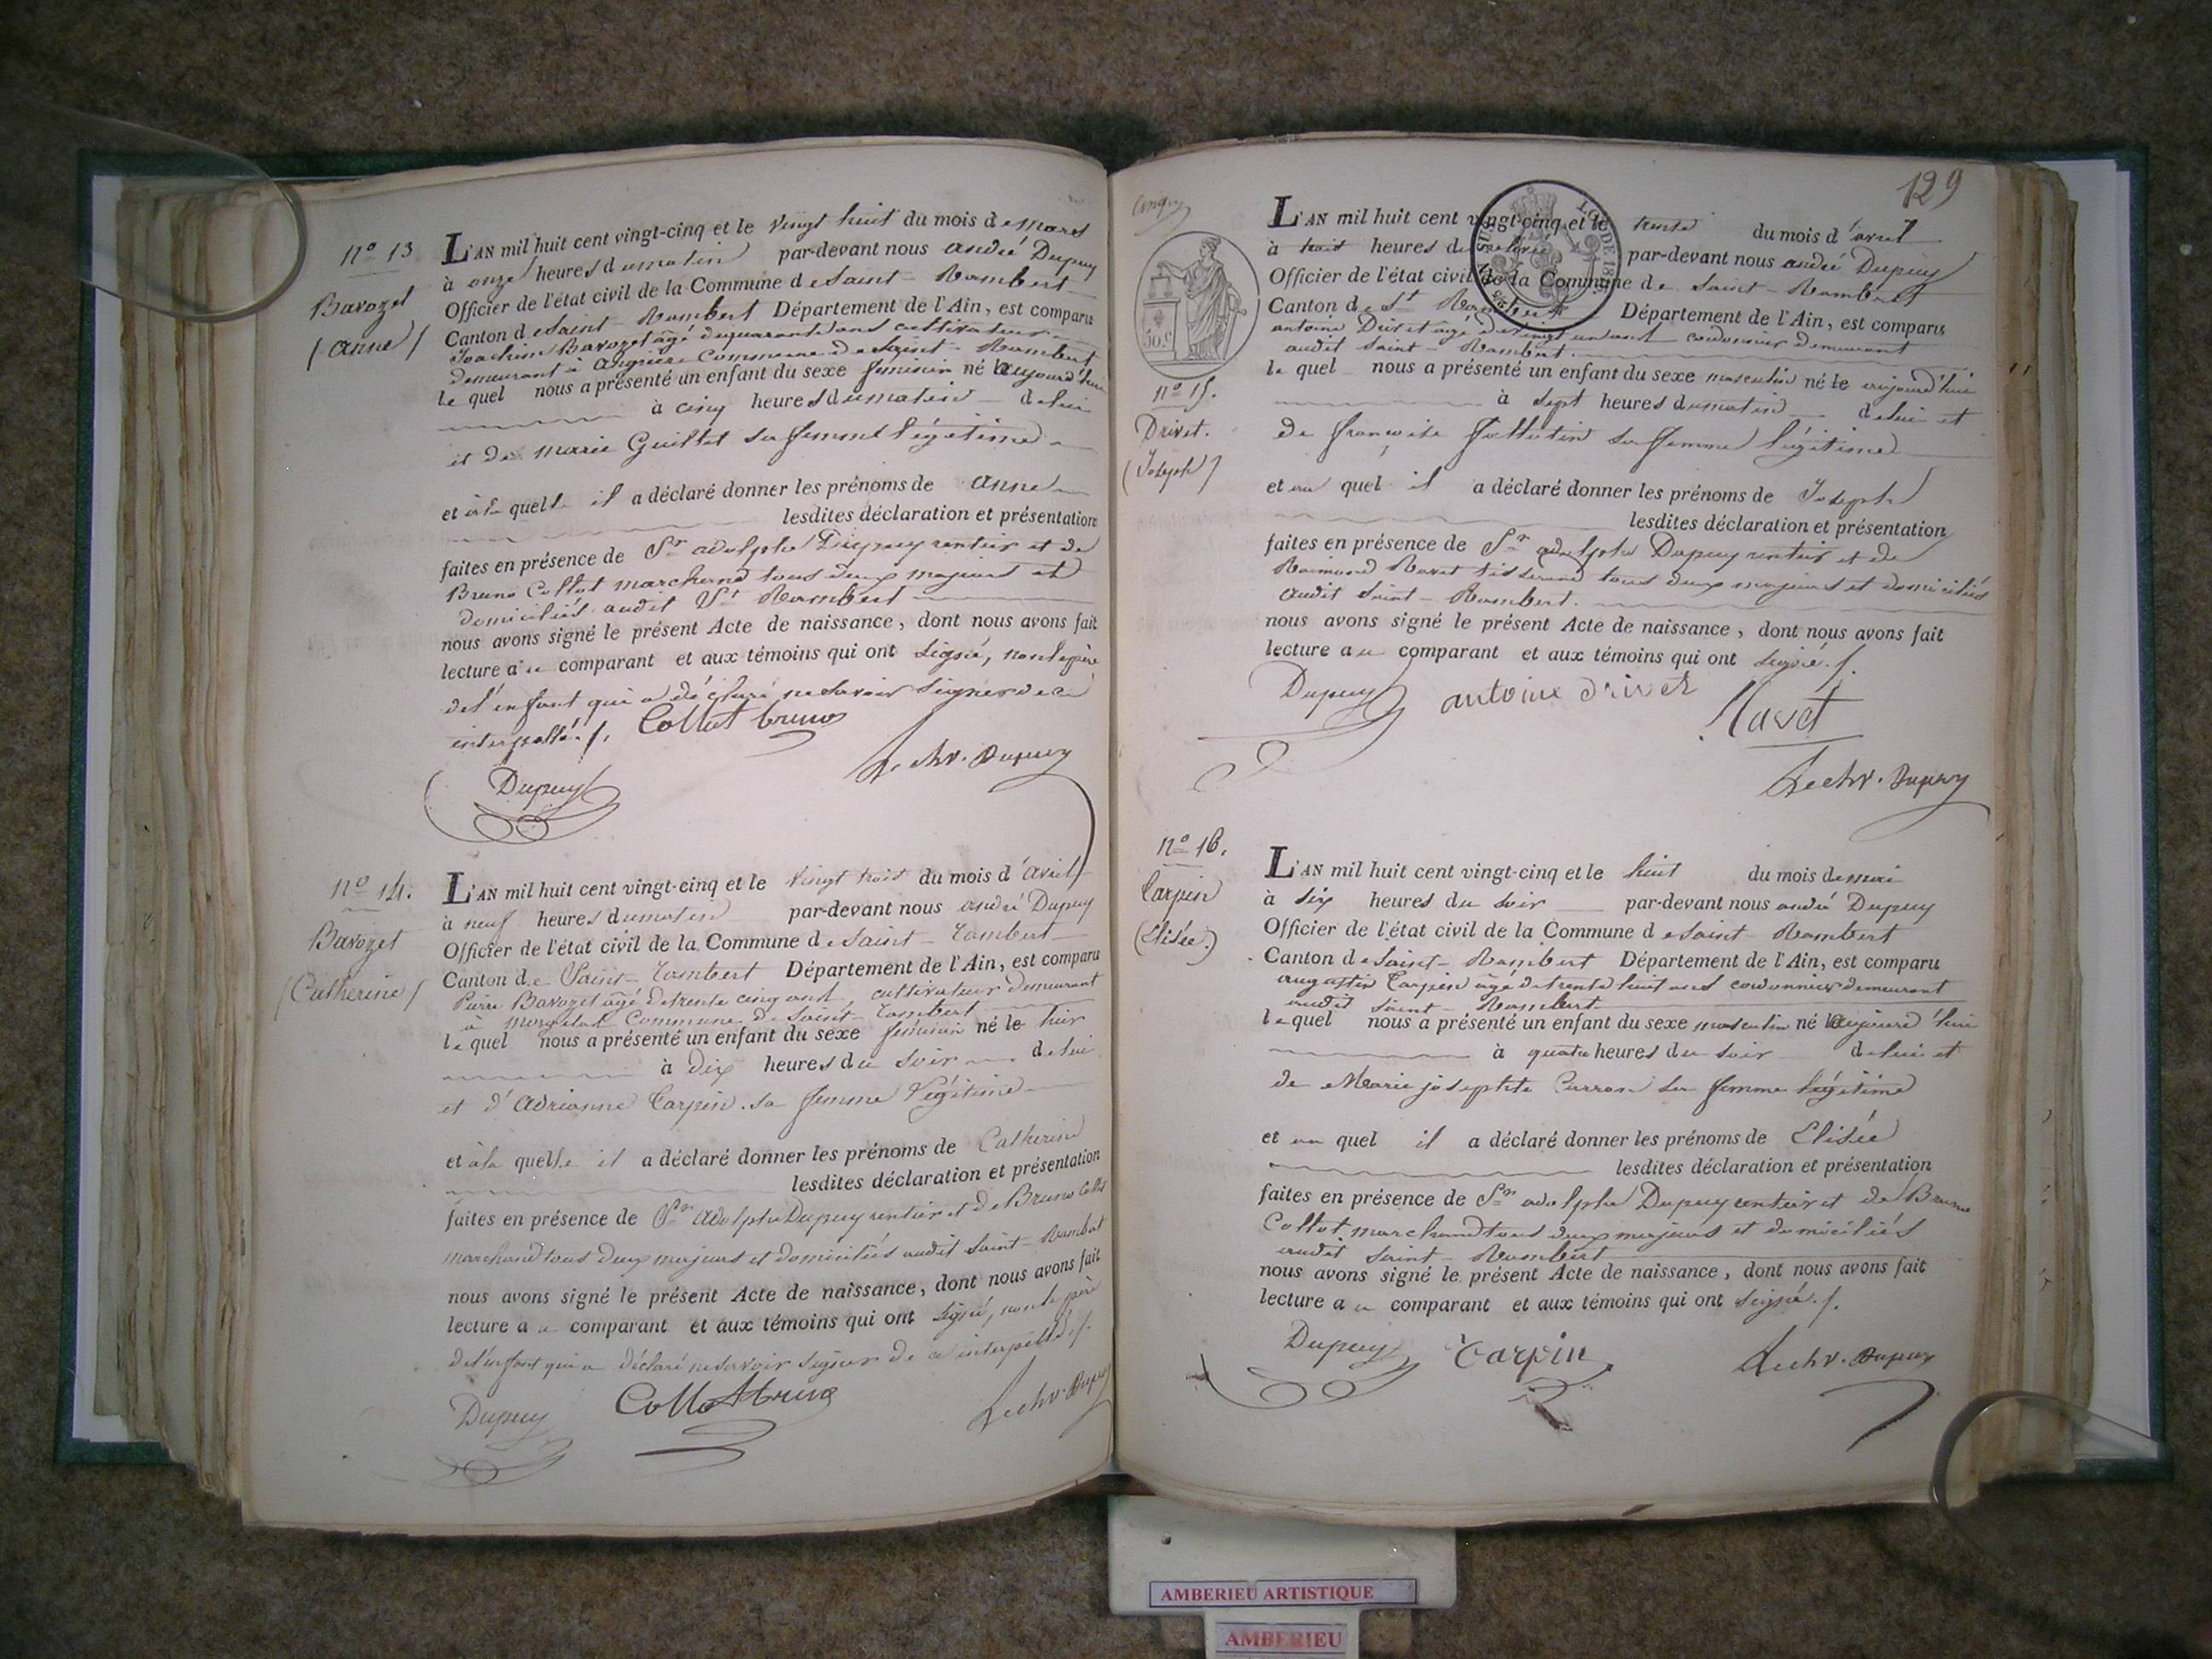 n° 13
Bavozet
(Anne)
L'AN mil huit cent vingt-cinq et le vingt huit du mois de mars
à onze heures du matin par-devant nous andré Dupuy
Officier de l'état civil de la Commune de Saint-Rambert
Canton de Saint-Rambert Département de l'Ain, est comparu
Joachim Bavozet âgé de quarante ans cultivateur
demeurant à Commune de Saint-Rambert
le quel nous a présenté un enfant du sexe feminin né aujourd'hui
à cinq heures du matin de lui
et de marie Guillot sa femme légitime
et à la quelle il a déclaré donner les prénoms de anne
lesdites déclaration et présentation
faites en présence de Sr adolphe Dupuy rentier et de
Bruno Collot marchand tous deux majeurs et
domiciliés audit St Rambert
nous avons signé le présent Acte de naissance, dont nous avons fait
lecture au comparant et aux témoins qui ont signé, non le père
de l'enfant qui a déclaré ne savoir signer de ce
interpellé./. Collot bruno
Dupuy Dupuy
n° 14.
Bavozet
(Catherine)
L'AN mil huit cent vingt-cinq et le vingt trois du mois d'avril
à neuf heures du matin par-devant nous andré Dupuy
Officier de l'état civil de la Commune de Saint-Rambert
Canton de Saint-Rambert Département de l'Ain, est comparu
Pierre Bavozet âgé de trente cinq ans, cultivateur demeurant
à Commune de Saint-Rambert
le quel nous a présenté un enfant du sexe feminin né le hier
à dix heures du soir de lui
et d'Adrianne Carpin sa femme légitime
et à la quelle il a déclaré donner les prénoms de Catherine
lesdites déclaration et présentation
faites en présence de Sr Adolphe Dupuy rentier et de Bruno Collot
marchand tous deux majeurs et domiciliés audit Saint-Rambert
nous avons signé le présent Acte de naissance, dont nous avons fait
lecture au comparant et aux témoins qui ont signé, non le père
de l'enfant qui a déclaré ne savoir signer de ce interpellé./.
Dupuy Collot bruno Dupuy
129
50.c
n° 15.
Drivet.
(Joseph)
L'AN mil huit cent vingt-cinq et le trente du mois d'avril
à trois heures de par-devant nous andré Dupuy
Officier de l'état civil de la Commune de Saint-Rambert
Canton de St Rambert Département de l'Ain, est comparu
antoine Drivet âgé de vingt un ans cordonnier demeurant
audit Saint-Rambert.
le quel nous a présenté un enfant du sexe masculin né le aujourd'hui
à sept heures du matin de lui et
de françoise sa femme légitime
et au quel il a déclaré donner les prénoms de Joseph
lesdites déclaration et présentation
faites en présence de Sr adolphe Dupuy rentier et de
Raimond Ravet tisserand tous deux majeurs et domiciliés
audit Saint-Rambert.
nous avons signé le présent Acte de naissance, dont nous avons fait
lecture au comparant et aux témoins qui ont signé./.
Dupuy antoine drivet Ravet
Dupuy
n° 16.
Carpin
(Elisée.)
L'AN mil huit cent vingt-cinq et le huit du mois de mai
à six heures du soir par-devant nous andré Dupuy
Officier de l'état civil de la Commune de Saint-Rambert
Canton de Saint-Rambert Département de l'Ain, est comparu
augustin Carpin âgé de trente huit ans cordonnier demeurant
audit Saint-Rambert
le quel nous a présenté un enfant du sexe masculin né aujourd'hui
à quatre heures du soir de lui et
de Marie josephte sa femme légitime
et au quel il a déclaré donner les prénoms de Elisée
lesdites déclaration et présentation
faites en présence de Sr adolphe Dupuy rentier et de Bruno
Collot marchand tous deux majeurs et domiciliés
audit Saint-Rambert
nous avons signé le présent Acte de naissance, dont nous avons fait
lecture au comparant et aux témoins qui ont signé./.
Dupuy Carpin Dupuy
AMBERIEU ARTISTIQUE
AMBERIEU